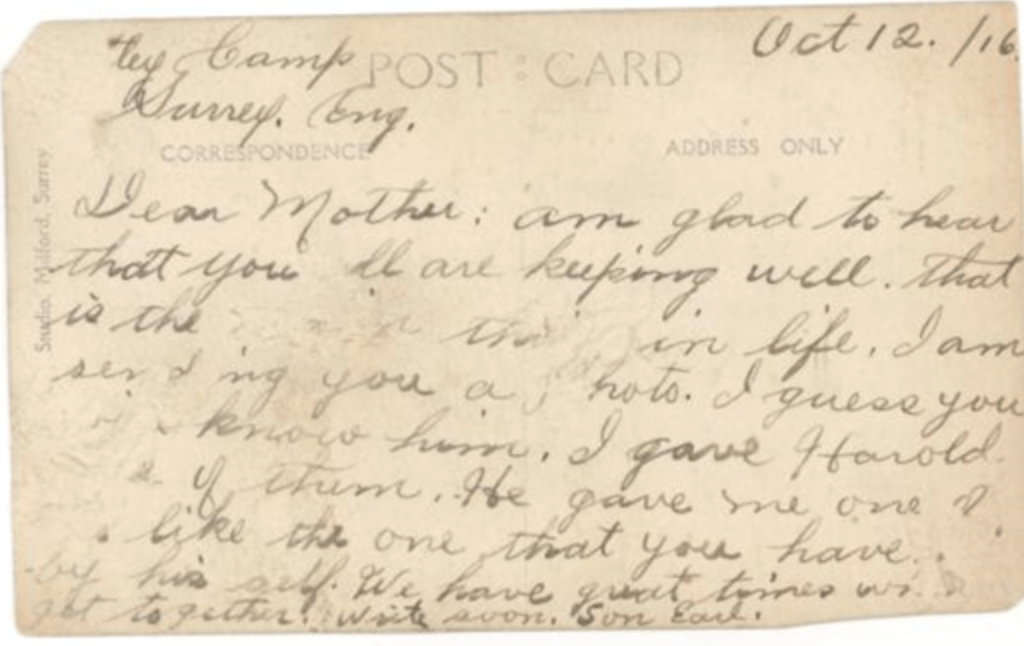 Camp
Surrey. Eng.
Oct 12. /16
POST CARD
CORRESPONDENCE
ADDRESS ONLY
Studio, Milford, Surrey
Dear Mother: am glad to hear
that you ll are keeping well. that
is the in life. I am
sending you a hoto. I guess you
know him. I gave Harold
of them. He gave me one
like the one that you have.
by his self. We have great times
get together. Write soon. Son Earl.